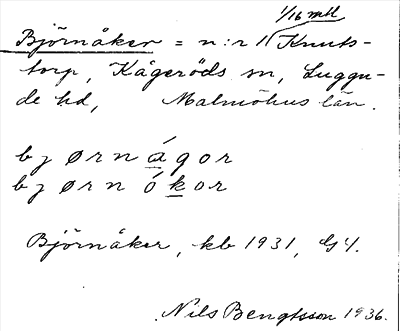 1/16 mtl
Björnåker = n:r 11 Knuts-
torp, Kågeröds sn, Luggu-
de hd, Malmöhus län.
bjørnágor
bjørnókor
Björnåker, kb 1931, G4.
Nils Bengtsson 1936.